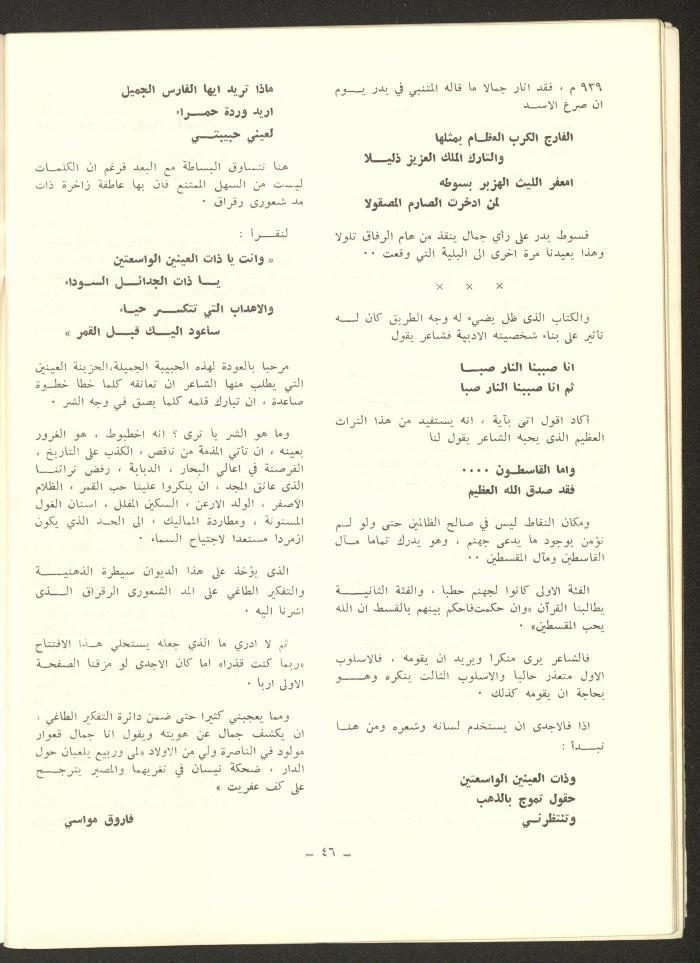 ٩٣٩ م ، فقد اثار جمالا ما قاله المتنبي في بدر يـــوم
ان صرع الاســد
الفارج الكرب العظـام بمثلها
والتارك الملك العزيز ذليـلا
امعفر الليث الهزبر بسوطه
لمن ادخرت الصارم المصقولا
فسوط بدر على رأي جمال ينقذ من هام الرفاق تلولا
وهذا يعيدنا مرة اخرى الى البلية التي وقعت ٠٠
× × ×
والكتاب الذى ظل يضيء له وجه الطريق كان لـــه
تأثير على بناء شخصيته الادبية فشاعر يقول
انا صببنا النار صبـــا
ثم انا صببنا النار صبا
أكاد اقول اتى بآية ، انه يستفيد من هذا التراث
العظيم الذى يحبه الشاعر يقول لنا
واما القاسطــون ٠٠٠٠
فقد صدق الله العظيم
ومكان النقاط ليس في صالح الظالمين حتى ولو لــم
نؤمن بوجود ما يدعى جهنم ، وهو يدرك تماما مــآل
القاسطين ومآل المقسطين ٠٠
الفئة الاولى كانوا لجهنم حطبا ، والفئة الثانيــــة
يطالبنا القرآن «وان حكمت فاحكم بينهم بالقسط ان الله
يحب المقسطين» ٠
فالشاعر يرى منكرا ويريد ان يقومه ، فالاسلوب
الاول متعذر حاليا والاسلوب الثالث ينكره وهـــو
بحاجة ان يقومه كذلك ٠
اذا فالاجدى ان يستخدم لسانه وشعره ومن هنــا
نبــدأ :
وذات العينين الواسعتين
حقول تموج بالذهب
وتنتظرنــي
ماذا تريد ايها الفارس الجميل
اريد وردة حمـــراء
لعيني حبيبتـــي
هنا تتساوق البساطة مع البعد فرغم ان الكلمات
ليست من السهل الممتنع فان بها عاطفة زاخرة ذات
مد شعورى رقراق ٠
لنقــرأ :
« وانت يا ذات العينين الواسعتين
يـــا ذات الجدائــل الســوداء
والاهداب التي تتكســر حيـاء
ساعود اليــك قبــل القمر »
مرحبا بالعودة لهذه الحبيبة الجميلة،الحزينة العينين
التي يطلب منها الشاعر ان تعانقه كلما خطا خطــوة
صاعدة ، ان تبارك قلمه كلما بصق في وجه الشر ٠
وما هو الشر يا ترى ؟ انه اخطبوط ، هو الغرور
بعينه ، ان تأتي المذمة من ناقص ، الكذب على التاريخ ،
القرصنة في اعالي البحار ، الذبابة ، رفض تراثنــا
الذى عانق المجد ، ان ينكروا علينا حب القمر ، الظلام
الاصفر ، الولد الارعن ، السكين المفلل ، اسنان الغول
المسنونة ، ومطاردة المماليك ، الى الحــد الذي يكون
ازمردا مستعدا لاجتياح السماء ٠
الذى يؤخذ على هذا الديوان سيطرة الذهنيــــة
والتفكير الطاغي على المد الشعورى الرقراق الــذى
اشرنا اليه ٠
ثم لا ادري ما الذي جعله يستحلي هــذا الافتتاح
«ربما كنت قذرا» اما كان الاجدى لو مزقنا الصفحة
الاولى اربا ٠
ومما يعجبني كثيرا حتى ضمن دائرة التفكير الطاغي ،
ان يكشف جمال عن هويته ويقول انا جمال قعوار
مولود في الناصرة ولي من الاولاد «لمى وربيع يلعبان حول
الدار ، ضحكة نيسان في ثغريهما والمصير يترجــح
على كف عفريت »
فاروق مواسي
– ٤٦ –